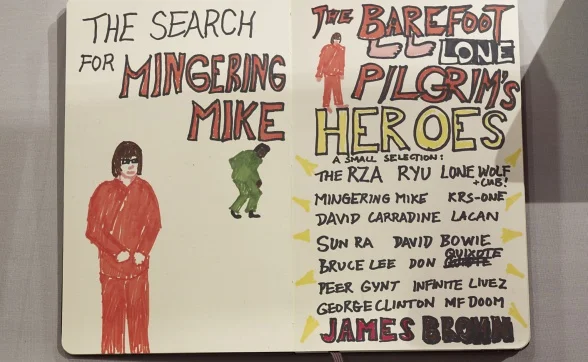 THE SEARCH
FOR MINGERING
MIKE
THE BAREFOOT
LONE
PILGRIM'S
HEROES
A SMALL SELECTION:
THE RZA RYU LONE WOLF
+CUB!
MINGERING MIKE KRS-ONE
DAVID CARRADINE LACAN
SUN RA DAVID BOWIE
QUIXOTE
BRUCE LEE DON
PEER GYNT INFINITE LIVEZ
GEORGE CLINTON MF DOOM
JAMES BROWN